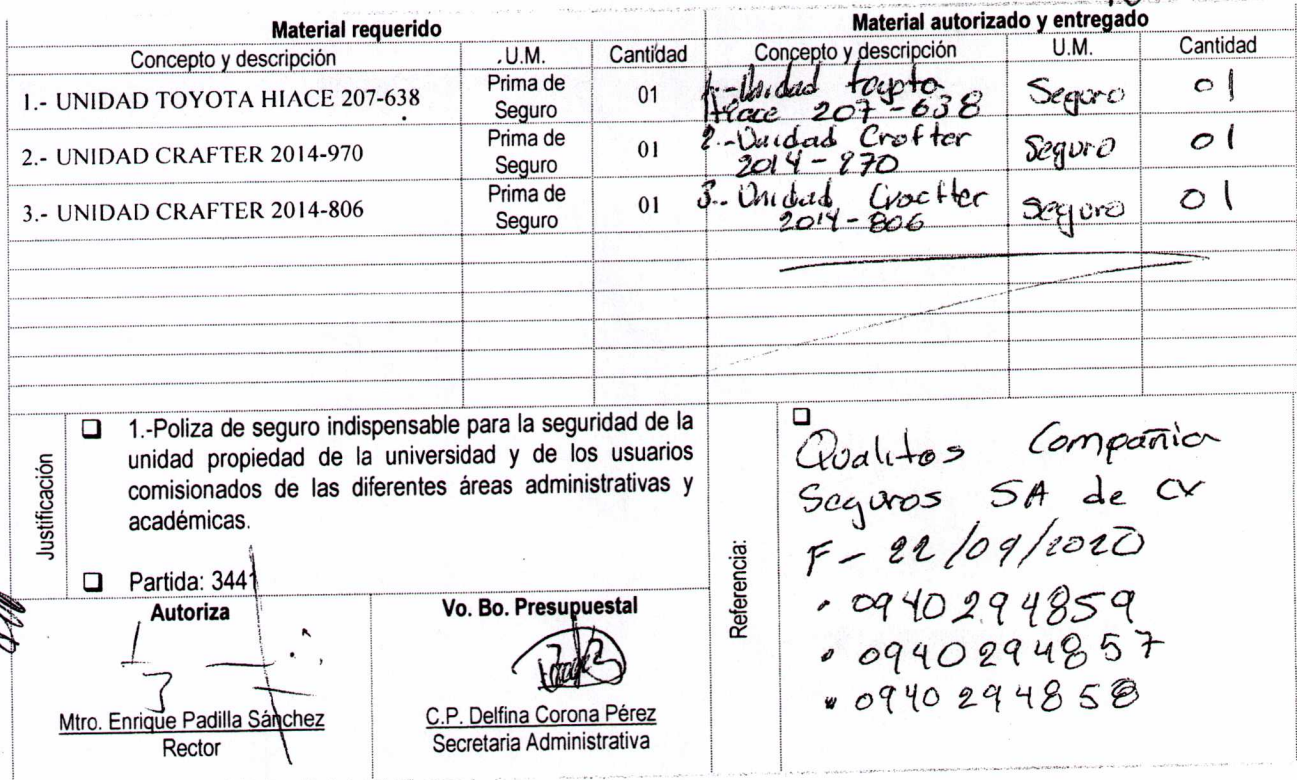 Material requerido Material autorizado y entregado
Concepto y descripción .U.M. Cantidad Concepto y descripción U.M. Cantidad
1.- UNIDAD TOYOTA HIACE 207-638 Prima de Seguro 01 1.-Unidad toyota Hiace 207-638 Seguro 01
2.- UNIDAD CRAFTER 2014-970 Prima de Seguro 01 2.-Unidad Crafter 2014-970 Seguro 01
3.- UNIDAD CRAFTER 2014-806 Prima de Seguro 01 3.- Unidad Craftter 2014-806 Seguro 01
Justificación
❑ 1.-Poliza de seguro indispensable para la seguridad de la
unidad propiedad de la universidad y de los usuarios
comisionados de las diferentes áreas administrativas y
académicas.
❑ Partida: 3441
Autoriza
Mtro. Enrique Padilla Sánchez
Rector
Vo. Bo. Presupuestal
C.P. Delfina Corona Pérez
Secretaria Administrativa
Referencia:
❑
Qualitas Compañia
Seguros SA de CV
F- 22/09/2020
• 0940294859
• 0940294857
• 0940294858